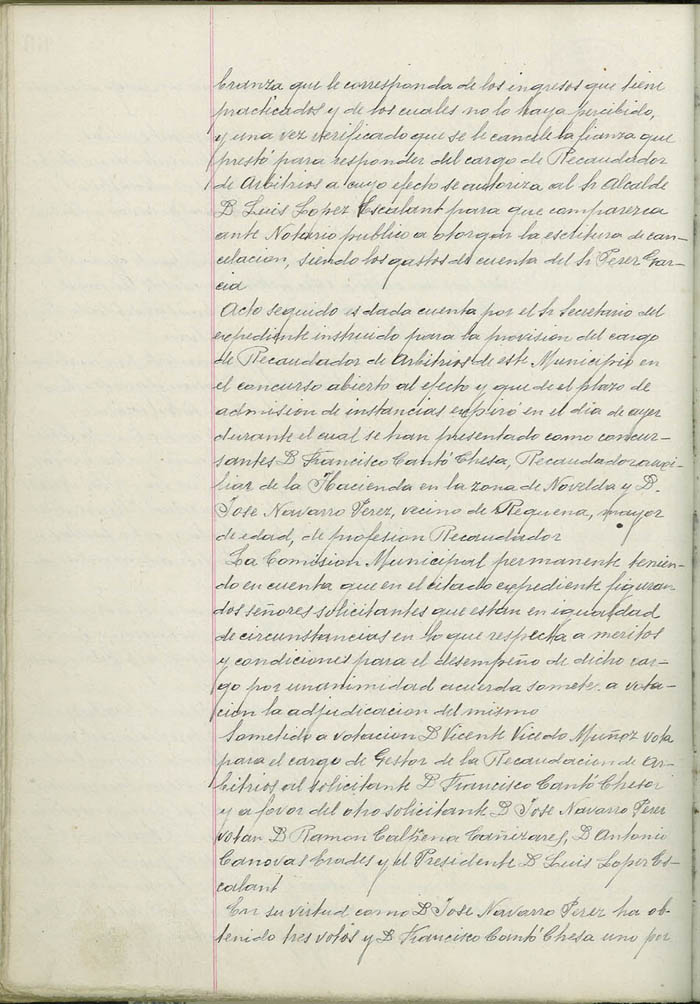 branza que le corresponda de los ingresos que tiene
practicados y de los cuales no lo haya percibido,
y una vez verificado que se le cancele la fianza que
prestó para responder del cargo de Recaudador
de Arbitrios a cuyo efecto se autoriza al Sr Alcalde
D Luis Lopez Escalant para que comparezca
ante Notario publico a otorgar la escritura de can-
celacion, siendo los gastos de cuenta del Sr Perez Gar-
cia
Acto seguido es dada cuenta por el Sr Secretario del
expediente instruido para la provision del cargo
de Recaudador de Arbitrios de este Municipio en
el concurso abierto al efecto y que de el plazo de
admision de instancias expiró en el dia de ayer
durante el cual se han presentado como concur-
santes D Francisco Cantó Chesa, Recaudador auxi-
liar de la Hacienda en la zona de Novelda y D.
Jose Navarro Perez, vecino de Requena, mayor
de edad, de profesion Recaudador
La Comision Municipal permanente tenien-
do en cuenta que en el citado expediente figuran
dos señores solicitantes que estan en igualdad
de circunstancias en lo que respecta a meritos
y condiciones para el desempeño de dicho car-
go por unanimidad acuerda someter a vota-
cion la adjudicacion del mismo
Sometido a votacion D Vicente Vicedo Muñoz vota
para el cargo de Gestor de la Recaudacion de Ar-
bitrios al solicitante D Francisco Cantó Chesa
y a favor del otro solicitante D Jose Navarro Perez
votan D Ramon Calpena Cañizares, D Antonio
Canovas Crades y el Presidente D Luis Lopez Es-
calant
En su virtud como D Jose Navarro Perez ha ob-
tenido tres votos y D Francisco Cantó Chesa uno por